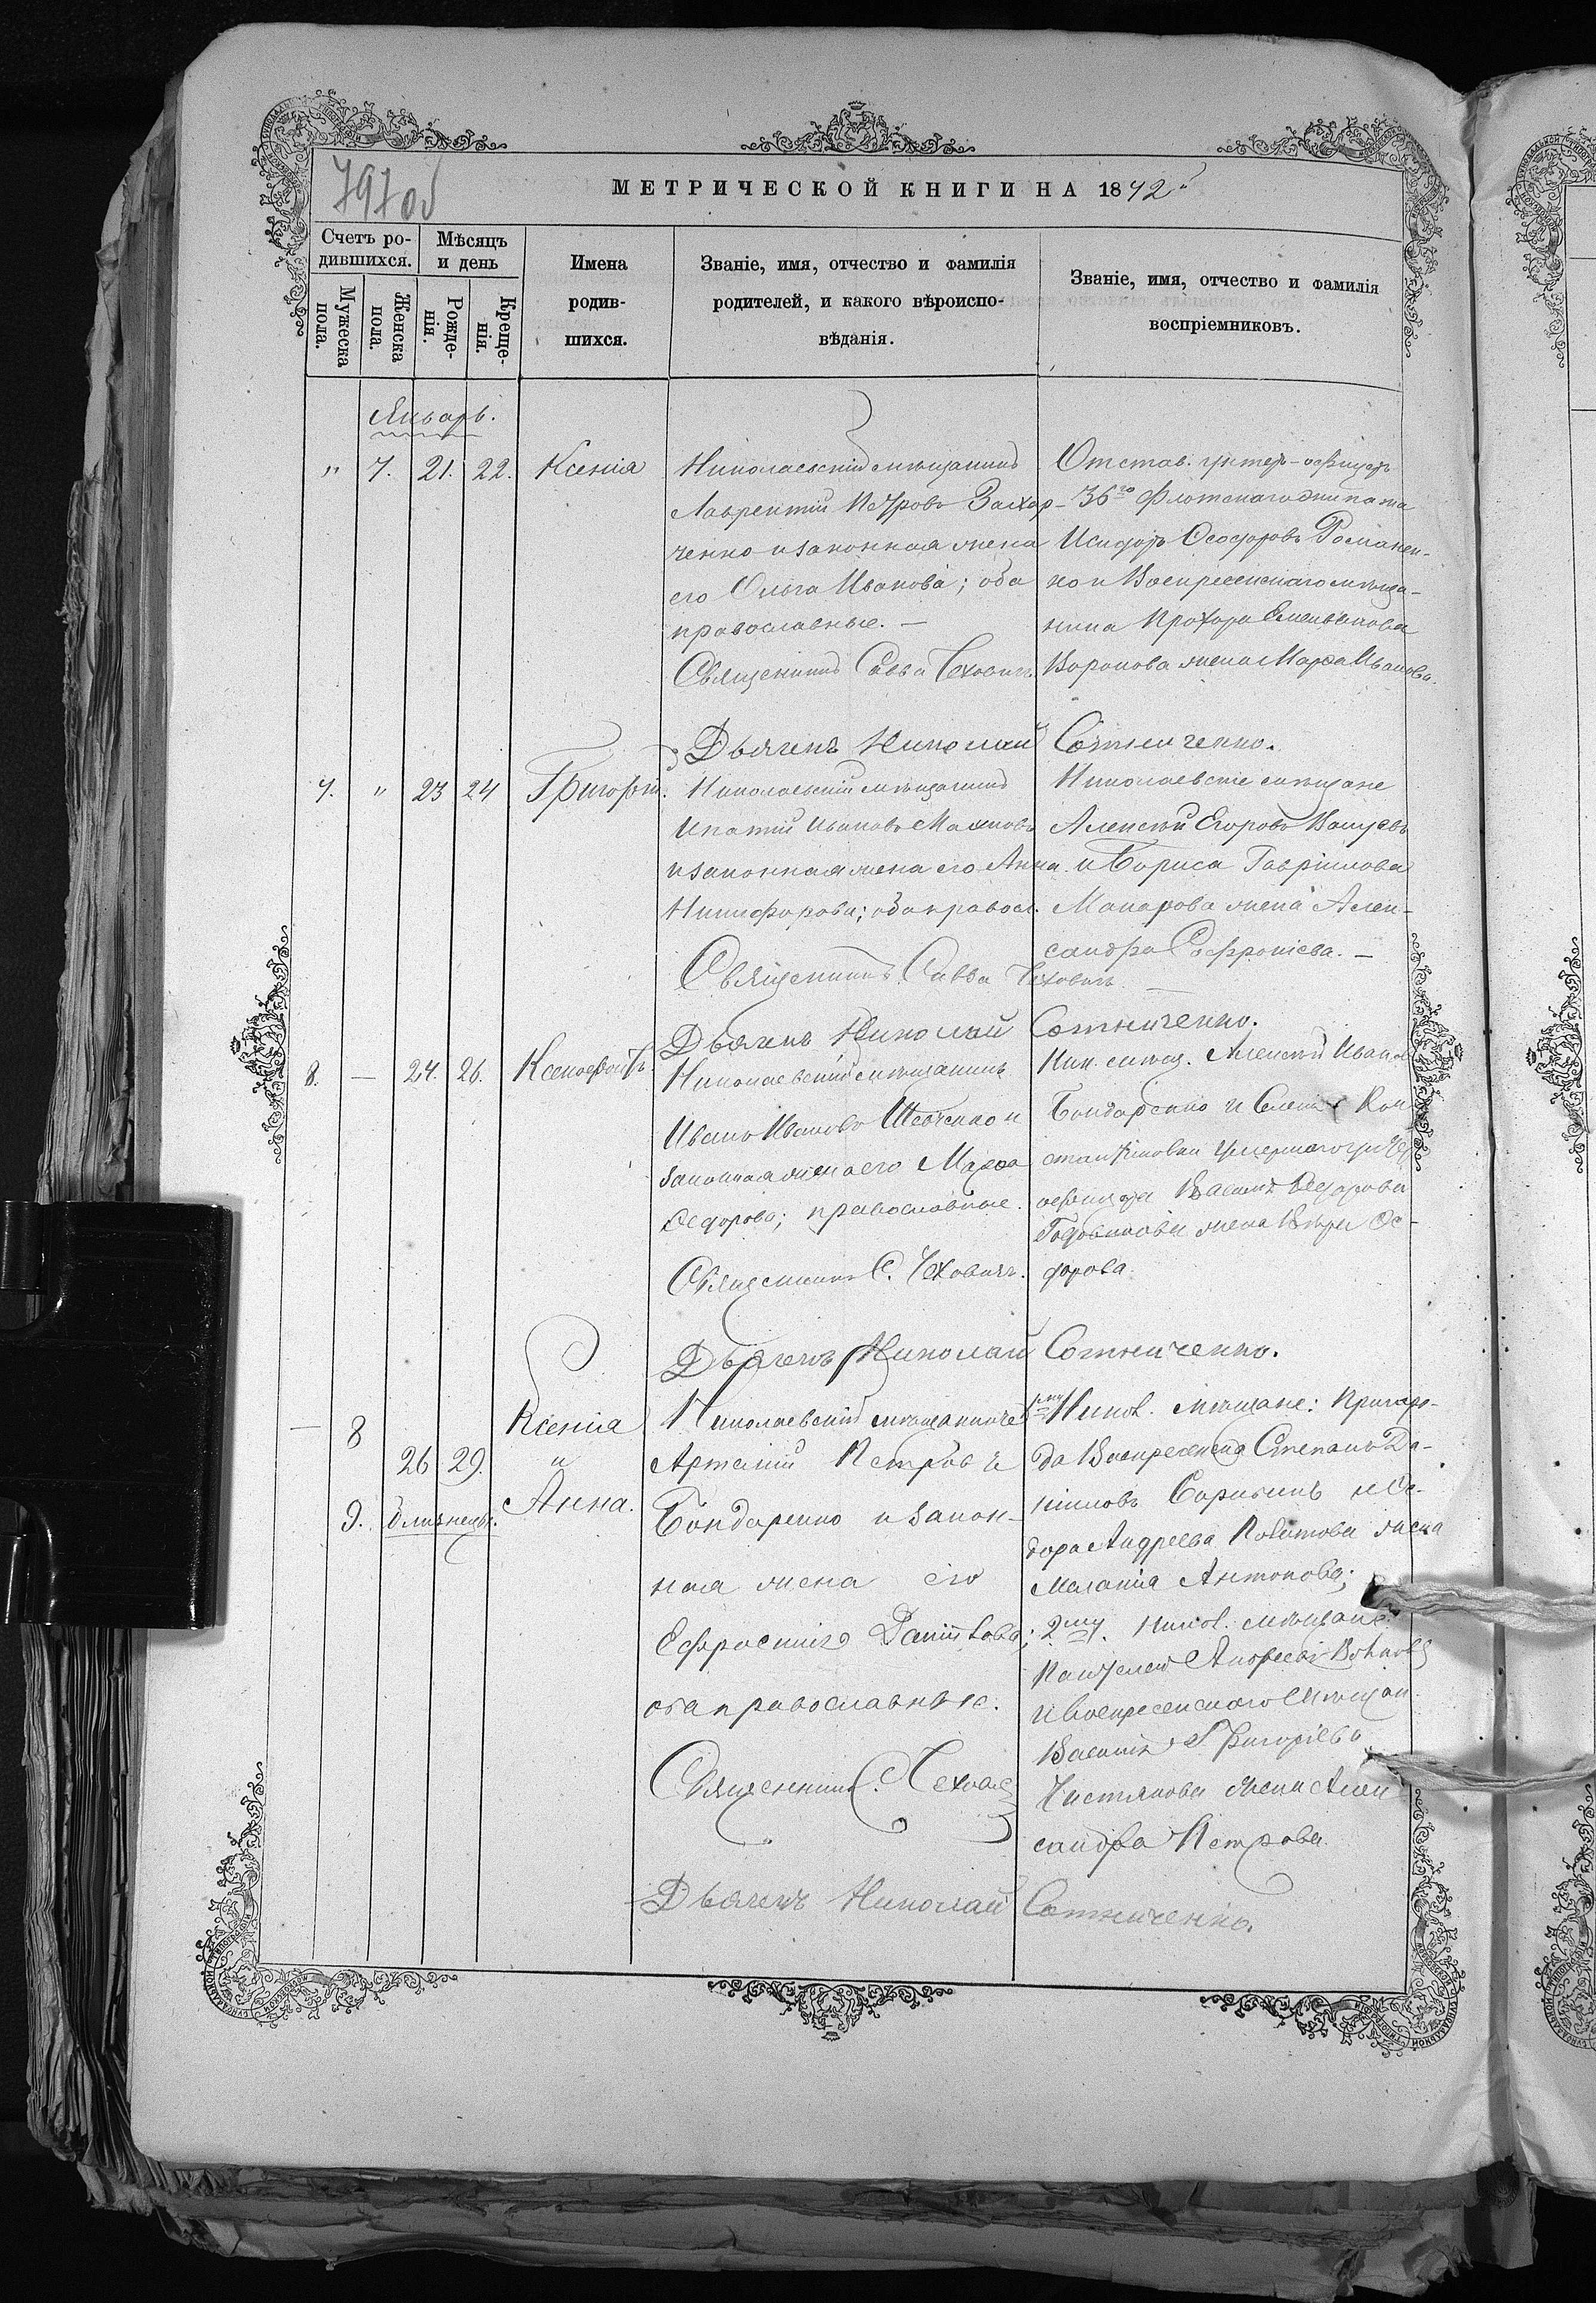 797об
МЕТРИЧЕСКОЙ КНИГИ НА 1872й
Счетъ ро-
дившихся.
Мѣсяцъ
и день
Мужеска
пола.
Женска
пола.
Рожде-
нія.
Креще-
нія.
Имена
родив-
шихся.
Званіе, имя, отчество и фамилія
родителей, и какого вѣроиспо-
вѣданія.
Званіе, имя, отчество и фамилія
воспріемниковъ.
Январь.
" 7. 21. 22. Ксенія
Николаевскій мѣщанинъ
Лаврентій Петровъ Захар-
ченко и законная жена
его Ольга Иванова; оба
православные. —
Священникъ Савва Чеховичъ.
Отстав. унтеръ-офицеръ
36го Флотскаго экипажа
Исидоръ Ѳеодоровъ Романен-
ко и Воскресенскаго мѣща-
нина Прохора Емельянова
Воронова жена Марѳа Иванова.
Дьячекъ Николай Сотниченко.
7. " 23 24 Григорій.
Николаевскій мѣщанинъ
Ипатій Ивановъ Махновъ
и законная жена его Анна
Никифорова; оба правосл.
Священникъ Савва Чеховичъ
Николаевскіе мѣщане
Алексѣй Егоровъ
и Бориса Гавріилова
Макарова жена Алек-
сандра Софроніева. —
Дьячекъ Николай Сотниченко.
8. — 24. 26. Ксенофонтъ.
Николаевскій мѣщанинъ
Иванъ Ивановъ Шевченко и
законная жена его Марѳа
Ѳедорова; православные.
Священникъ С. Чеховичъ.
Ник. мѣщ. Алексѣй Иванов
Бондаренко и
умершаго унтеръ
офицера Василія Ѳедорова
жена Вѣра Ѳе-
дорова
Дьячекъ Николай Сотниченко.
— 8 Ксенія
26 29. и
9. близнецы. Анна.
Николаевскій мѣщанинъ
Артемій Петровъ
Бондаренко и закон-
ная жена его
Ефросинія Даніилова;
оба православные.
Священникъ С. Чеховичъ
1й Никол. мѣщане: Пригоро-
да Воскресенска Степанъ Да-
ниловъ и Ѳе-
дора Андреева жена
Маланія Антонова;
2му. Никол. мѣщане
Пантелей Андреевъ
и Воскресенскаго мѣщан.
Василія Григорьева
Чистякова жена Алек
сандра Петрова
Дьячекъ Николай Сотниченко.